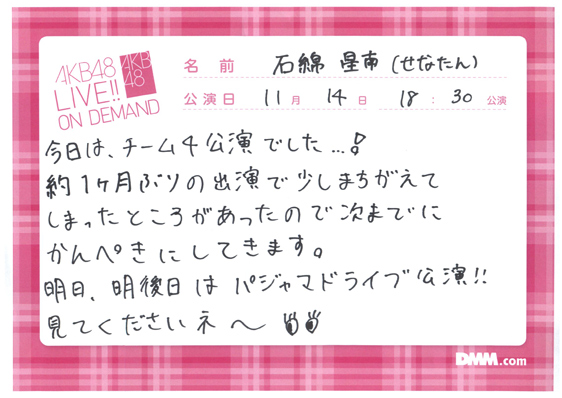 AKB48
LIVE!!
ON DEMAND
AKB
48
名前 石綿 星南 (せなたん)
公演日 11月 14日 18:30 公演
今日は、チーム4公演でした...!
約1ヶ月ぶりの出演で少しまちがえて
しまったところがあったので次までに
かんぺきにしてきます。
明日、明後日はパジャマドライブ公演!!
見てくださいネ〜
DMM.com